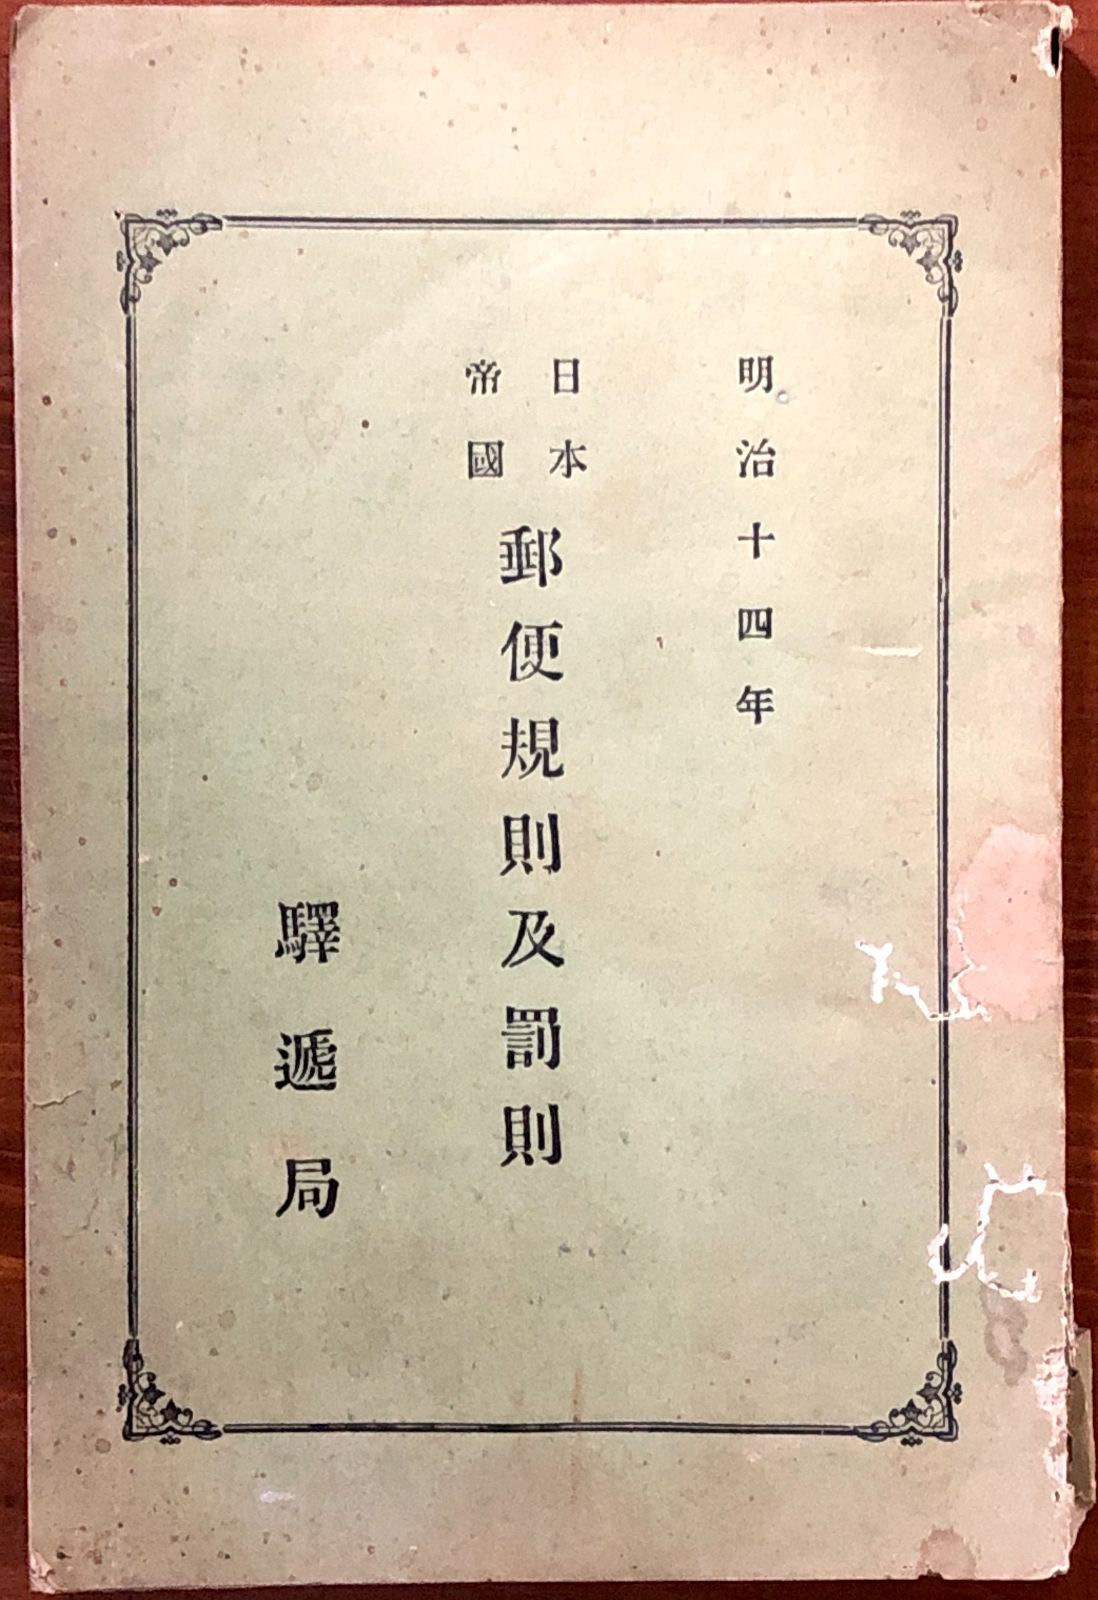 明治十四年
日本
帝國
郵便規則及罰則
驛遞局